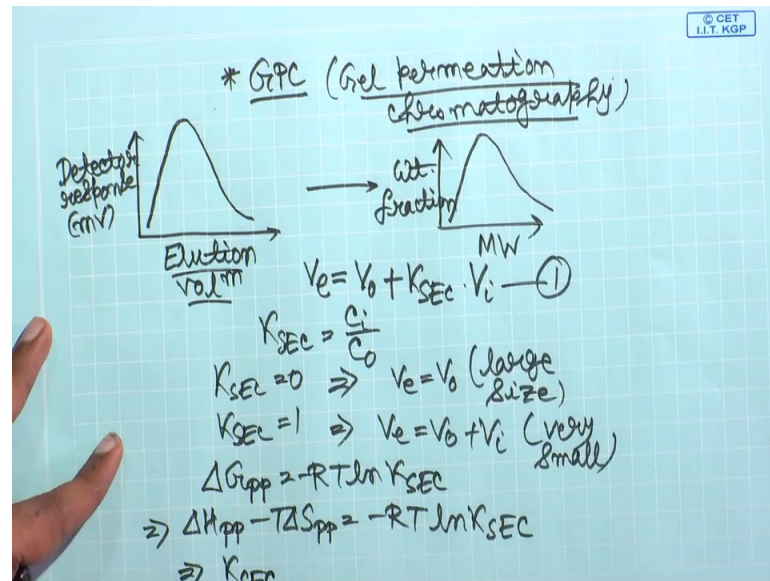 © CET
I.I.T. KGP
* GPC (Gel permeattion
chromatography)
Detector
response
(mV)
Elution
volᵐ
Wt.
fraction
MW
Vₑ = V₀ + K_SEC . Vᵢ — ①
K_SEC = Cᵢ/C₀
K_SEC = 0 ⇒ Vₑ = V₀ (large
size)
K_SEC = 1 ⇒ Vₑ = V₀ + Vᵢ (very
small)
ΔG_pp = -RT ln K_SEC
⇒ ΔH_pp - TΔS_pp = -RT ln K_SEC
⇒ K_SEC